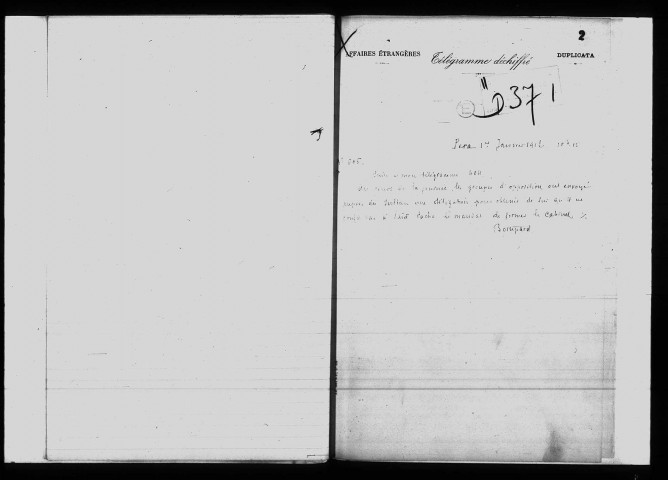 2
AFFAIRES ÉTRANGÈRES Télégramme déchiffré DUPLICATA
E
"D 371
Pera, 1er Janvier 1912
Suite à mon télégramme
de la journée, les groupes d'opposition ont envoyé
auprès du Sultan une délégation pour obtenir de lui qu'il ne
pas à Saïd Pacha le mandat de former le Cabinet.
Bompard